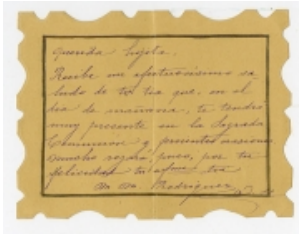 Querida Lujota.
Recibe un efectuosisimo sa
ludo de tu tia que, en el
dia de mañana, te tendrá
muy presente en la Sagrada
Comunion y
mucho rogará, pues, por tu
felicidad tu tia
Rodriguez